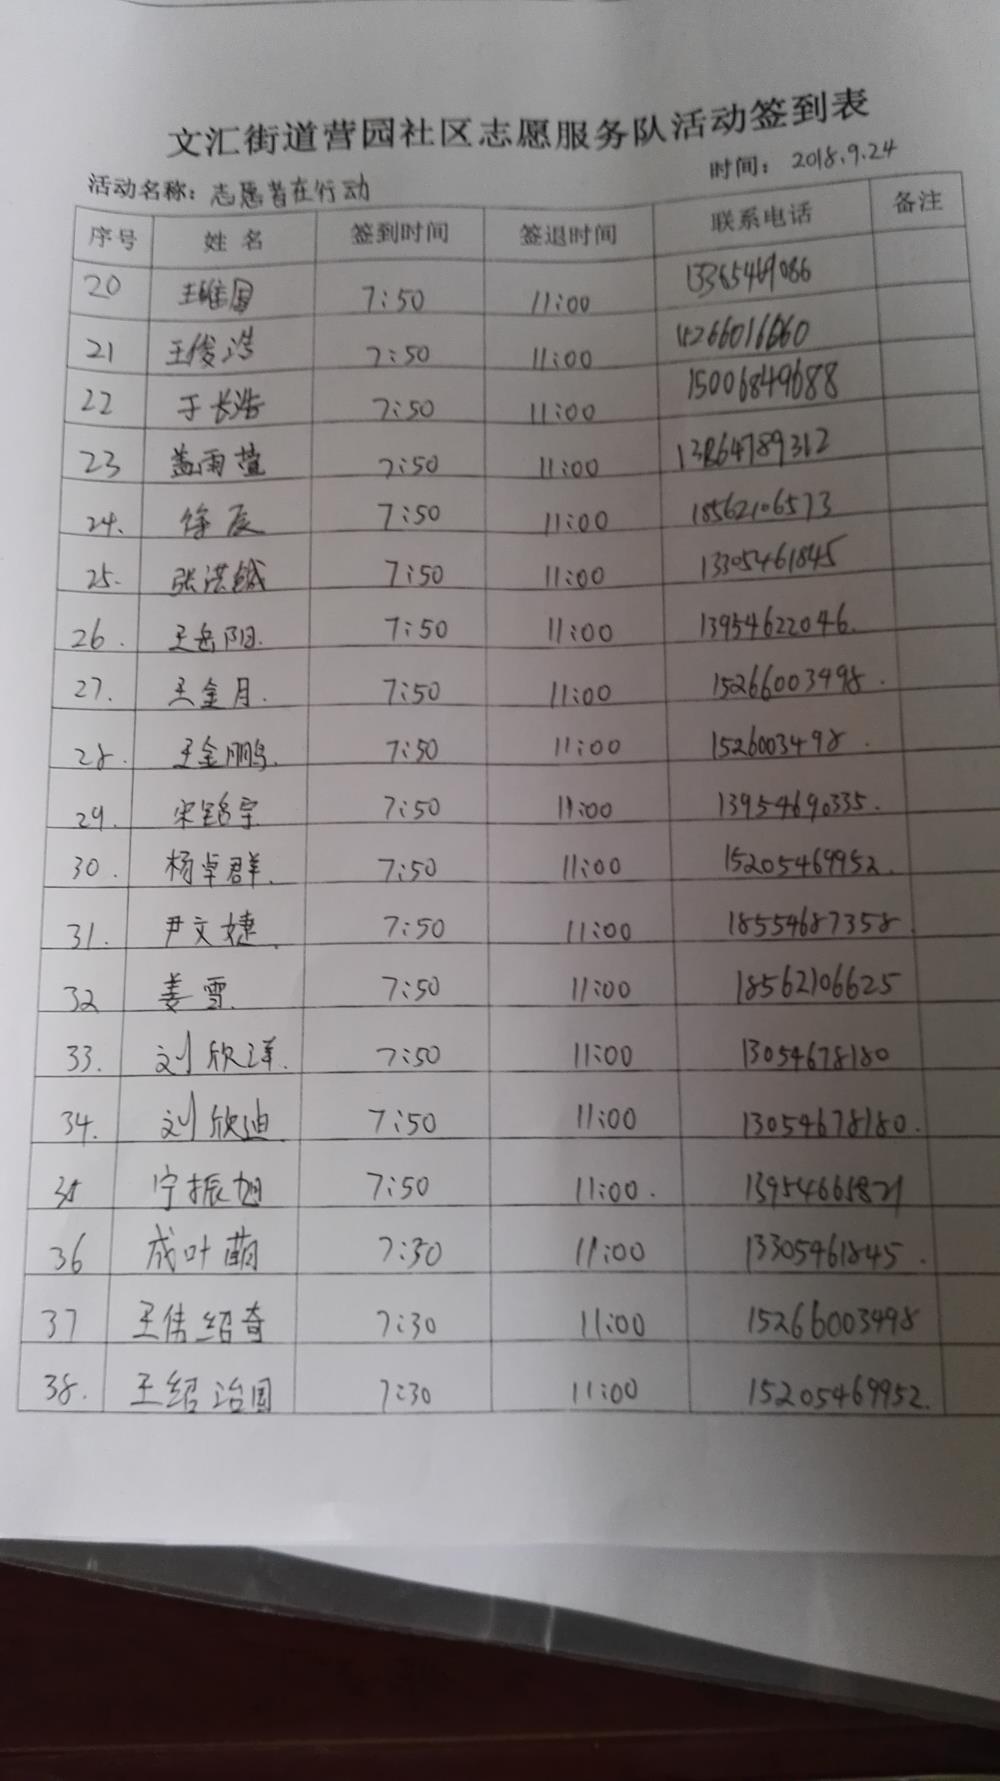 文汇街道营园社区志愿服务队活动签到表
活动名称：志愿者在行动 时间：2018.9.24
序号 姓名 签到时间 签退时间 联系电话 备注
20 王维国 7:50 11:00 13365469086
21 王俊浩 7:50 11:00 15266016660
22 于长浩 7:50 11:00 15006849688
23 盖雨萱 7:50 11:00 13864789312
24. 徐辰 7:50 11:00 18562106573
25. 张洪铖 7:50 11:00 13305461845
26. 王岳阳. 7:50 11:00 13954622046.
27. 王金月. 7:50 11:00 15266003498.
28. 王金鹏. 7:50 11:00 1526003498.
29. 宋铭宇 7:50 11:00 13954690335.
30. 杨卓群. 7:50 11:00 15205469952.
31. 尹文婕. 7:50 11:00 18554687358
32 姜雪. 7:50 11:00 18562106625
33. 刘欣洋. 7:50 11:00 13054678180
34. 刘欣迪 7:50 11:00 13054678180.
35 宁振旭 7:50 11:00. 13954665821
36 成叶萌 7:30 11:00 13305461845.
37 王伟绍奇 7:30 11:00 15266003498
38. 王绍治国 7:30 11:00 15205469952.